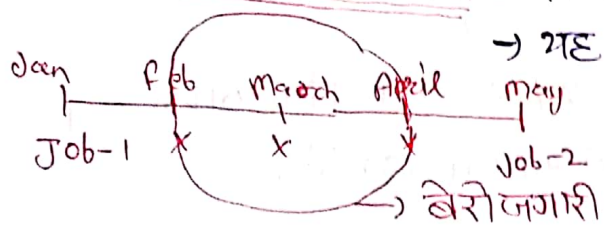 → यह
Jan Feb March April May
Job-1 x x x Job-2
→ बेरोजगारी